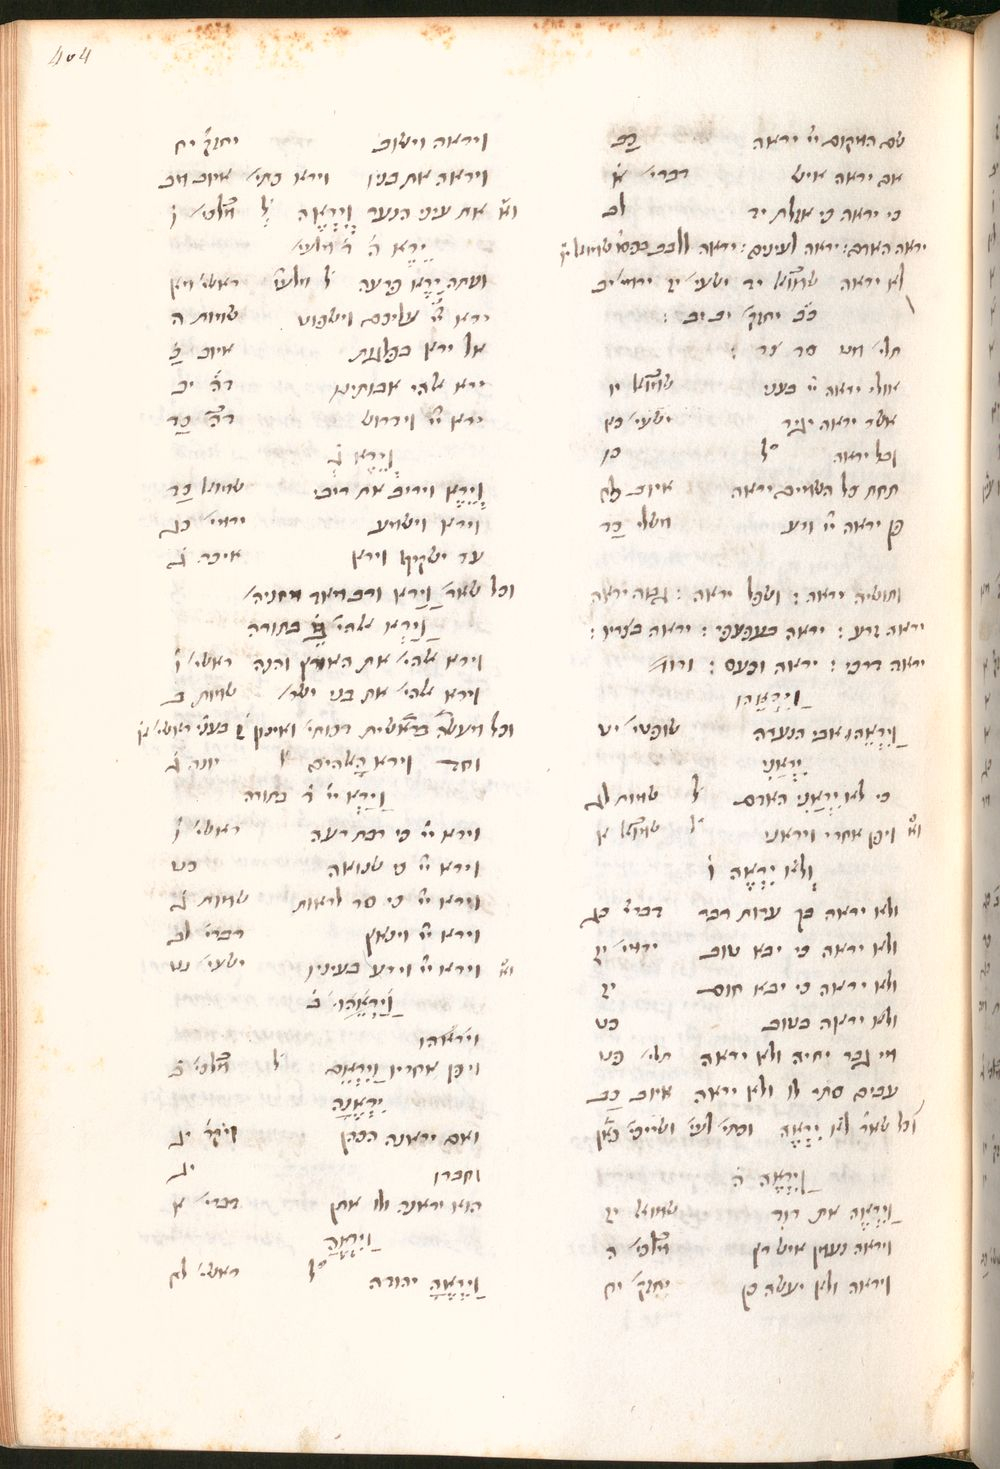 404
שם המקום יי׳ יראה כב
אם יראה איש דברי׳ א׳
כי יראה כי אזלת יד לב
יראה האדם : יראה לעינים : יראה ללבב
לא יראה שמואל יד ישעי׳ יז ירמי׳ יב
כב יחזק׳ יב יב :
תלי׳ מט סד צד :
אולי יראה יי׳ בעני שמואל יו
אשר יראה יגיד ישעי׳ כא
וכל יראה ל׳ כו
תחת כל השמים יראה איוב כח
פן יראה יי׳ ורע משלי כד
ותושיה יראה : ושפל יראה : גבוה יראה
יראה זרע : יראה בעפעפי : יראה בצריו :
יראה דרכי : יראה וכעס :
וַיִרְאֵהוּ
וַיִרְאֵהוּ אבי הנערה שופטי׳ יט
יִרְאַנִי
כי לא יִרְאַנִי האדם ל׳ שמות לג
וא׳ ויפן אחריו ויראני ל׳ שמואל א
וְלֹא יִרְאֶה ו׳
ולא יראה בך ערות דבר דברי׳ כג
ולא יראה כי יבא טוב ירמי׳ יז
ולא יראה כי יבא חום יז
ולא יראה בטוב כט
מי גבר יחיה ולא יראה תלי׳ פט
עבים סתר לו ולא יראה איוב כב
וכל שאר׳ לֹא יִרְאֶה
וַיִרְאֶה ה׳
וַיִרְאֶה את דוד שמואל יז
ויראה נעמן איש רץ מלכי׳ ה
ויראה ולא יעשה כן יחזק׳ יח
ויראה וישוב יחזק׳ יח
ויראה את בניו וירא כתי׳ איוב מב
וא׳ את עיני הנער וַיִרְאֶה ל׳ מלכי׳ ו
יֵרֶא ה׳
ועתה יֵרֶא פרעה ל׳ ראשי׳ מא
ירא יי׳ עליכם וישפוט שמות ה
אל ירא בפלגות איוב כ
ירא אלהי אבותינו דה׳ יב
ירא יי׳ וידרוש דה׳ כד
וַיֵרֶא ג
וַיֵרֶא וירב את ריבי שמואל כד
וירא וישמע ירמי׳ כג
עד ישקיף וירא איכה ג
וכל שאר׳ וַיַרְא
וַיַרְא אלהי׳ בתורה
וירא אלהי׳ את הארץ והנה ראשי׳ ו
וירא אלהי׳ את בני ישר׳ שמות ב
וכל מעשה בראשית דכותי׳
וחד וירא הָאלהים ל׳ יונה ג
וַיַרְא יי׳ בתורה
וירא יי׳ כי רבת רעה ראשי׳ ו
וירא יי׳ כי שנואה כט
וירא יי׳ כי סר לראות שמות ג
וירא יי׳ וינאץ דברי׳ לב
וא׳ וירא יי׳ וירע בעיניו ישעי׳ נט
וַיִרְאֵהוּ ב׳
ויראהו
ויפן אחריו וַיִרְאֵם ל׳ מלכי׳ ב
יִרְאֶנָה
ואם יראנה הכהן ויקר׳ יג
וחברו יג
הוא יראנה ולו אתן דברי׳ א
וַיִרְאֶהָ
וַיִרְאֶהָ יהודה ל׳ ראשי׳ לח